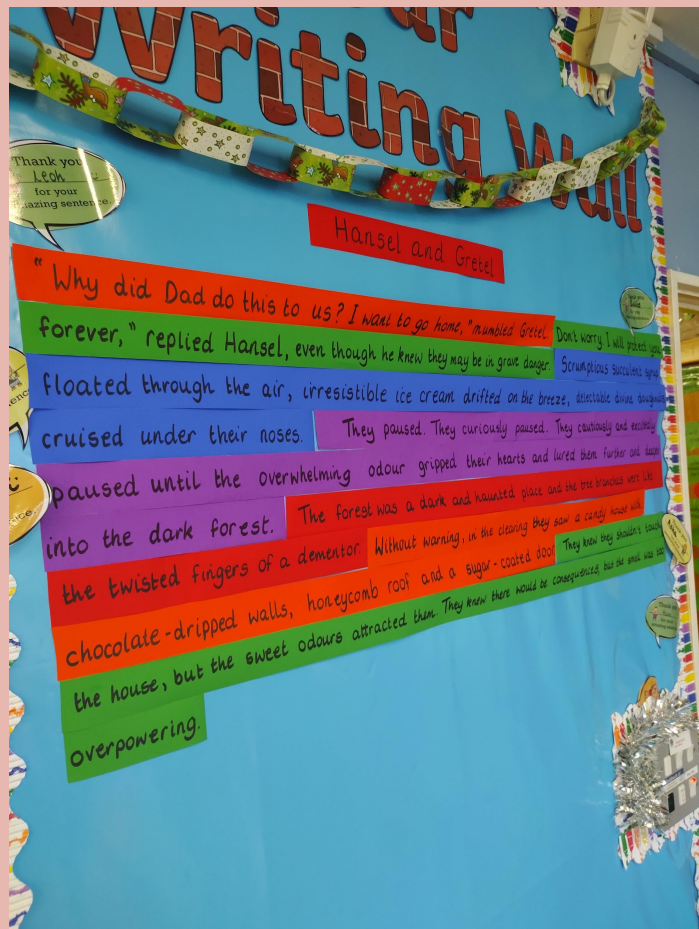 Writing Wall
Thank you
Leah
for your
amazing sentence.
Hansel and Gretel
"Why did Dad do this to us? I want to go home," mumbled Gretel. Don't worry I will protect you
forever," replied Hansel, even though he knew they may be in grave danger. Scrumptious succulent syrup
floated through the air, irresistible ice cream drifted on the breeze, delectable divine doughnuts
cruised under their noses. They paused. They curiously paused. They cautiously and excitedly
paused until the overwhelming odour gripped their hearts and lured them further and deeper
into the dark forest. The forest was a dark and haunted place and the tree branches were like
the twisted fingers of a dementor. Without warning, in the clearing they saw a candy house with
chocolate-dripped walls, honeycomb roof and a sugar-coated door. They knew they shouldn't touch
the house, but the sweet odours attracted them. They knew there would be consequences, but the smell was too
overpowering.